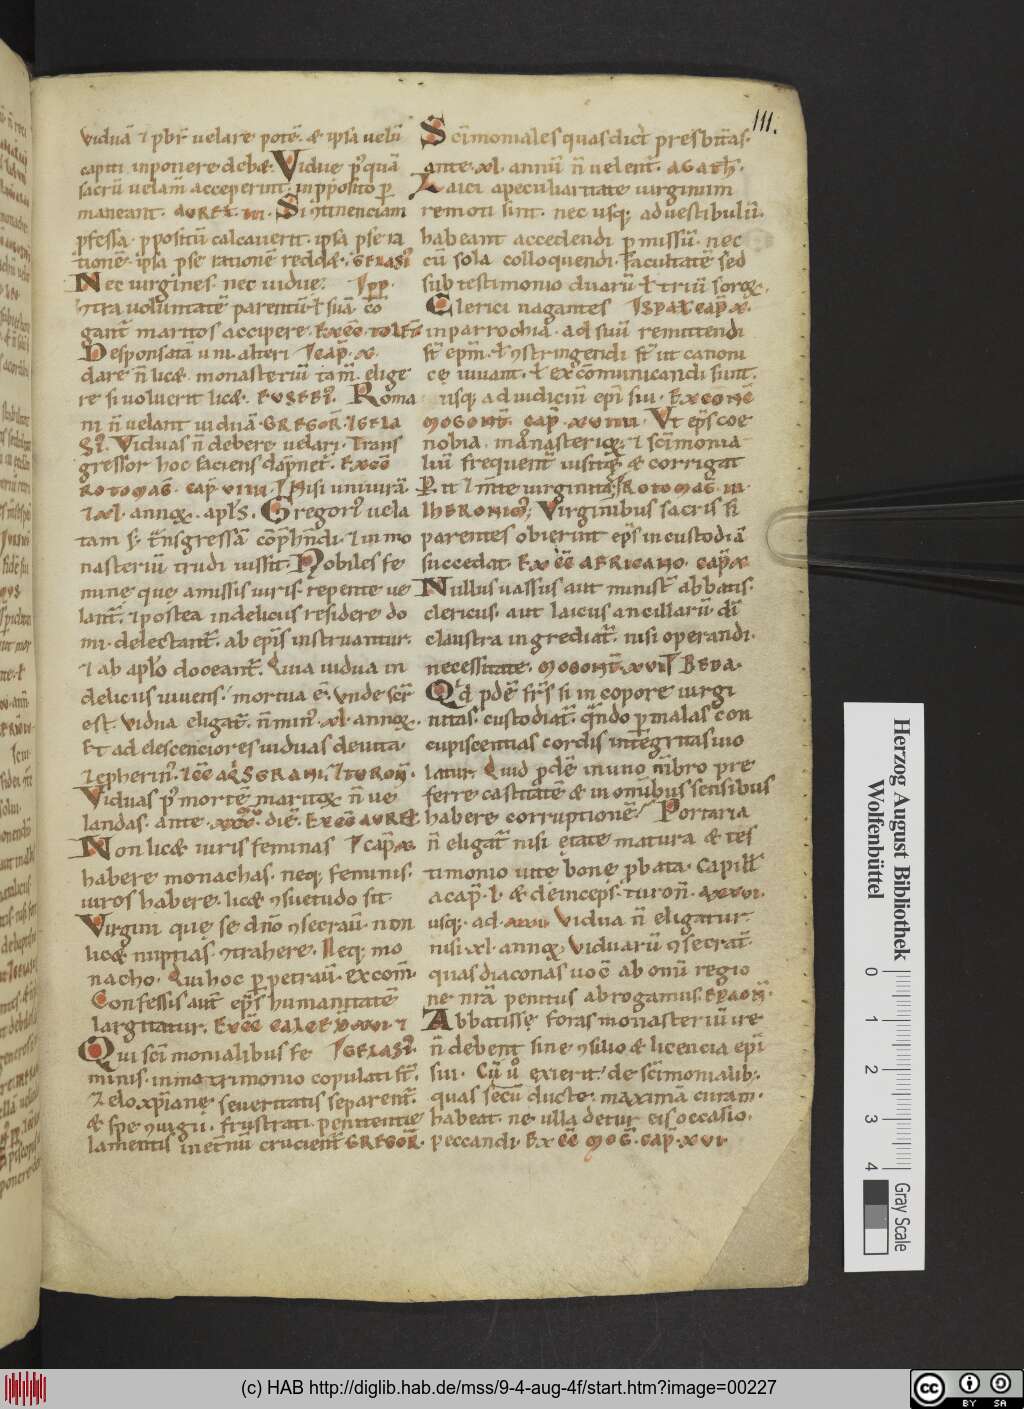 111.
viduā ⁊ pbr̄ uelare potē. & ipsa uelū
capiti inponere debæ. Vidue p᾿quā
sacrū uelam̄ acceperint. in pposito p̱
maneant. AUREL. III. Si ꝯtinenciam
pfessa. ppositū calcauerit. ipsa p se ra
tionē. ipsa p se rationē reddæ. GELASI᾿
Nec uirgines. nec uidue.
ꝯtra uoluntatē parentū ł suā. co
gant̄ maritos accipere. EX CC̄ TOLET̄
Desponsatā uni. alteri CAP̄. X.
dare n̄ licæ. monasteriū tam̄. elige
re si uoluerit licæ. EUSEBI᾿. Roma
ni n̄ uelant uiduā. GREGOR̄. GELA
SI᾿. Viduas n̄ debere uelari. Trans
gressor hoc faciens dāpnet̄. EX CC̄
ROTOMAG̅. CAP̄ VIIII. Nisi uniuirā
⁊ xl. annoꝝ. apl̄s. Gregori᾿ uela
tam s; t̄nsgressā cōp̄hn̄di. ⁊ in mo
nasteriū trudi iussit. Nobiles fe
mine que amissis uiris. repente ue
lant̄. ⁊ postea in deliciis residere do
mi. delectant̄. ab ep̄is instruantur.
⁊ ab aplo doceant̄. Quia uidua in
deliciis uiuens. mortua ē. Vnde scr̄
est. Vidua eligat̄. n̄ min᾿. xl. annoꝝ.
Et ad descenciores uiduas deuita.
Viduas p᾿ mortē maritoꝝ n̄ ue
landas. ante. xxx. diē. EX CC̄ AURE
Non licæ uiris feminas CAP̄ X
habere monachas. neq; feminis.
uiros habere. licæ ꝯsuetudo sit.
Virgini que se dn̄o ꝯsecraū. non
licæ nuptias ꝯtrahere. Neq; mo
nacho. Qui hoc p̱petraū. excom̄.
Confessis aut̄ ep̄s humanitatē
largiatur.
Qui sc̄imonialibus fe GELASI᾿.
minis. in matrimonio copulati st̄.
Zelo xpiane seueritatis separent̄.
& spe ꝯiugii. frustrati. penitentie
lamentis in et̄nū crucient̄ GREGOR̄.
Sc̄imoniales quas dicit presbit̄as.
ante. xl. annū n̄ uelent̄. AGATH̄.
Laici a peculiaritate uirginum
remoti sint. nec usq; ad uestibulū.
habeant accedendi p̱missū. nec
cū sola colloquendi. facultatē sed
sub testimonio duarū ł triū soroꝝ.
Clerici uagantes ISPAL CAP̄ X.
in parrochia. ad suū remittendi
st̄ ep̄m. ł ꝯstringendi st̄ ut canoni
ce uiuant. ł excōmunicandi sunt.
usq; ad iudiciū ep̄i sui. EX CONC̄
MOGONT̄. CAP̄. XVIIII. Vt ep̄s coe
nobia. monasterioꝝ. ⁊ sc̄imonia
liū frequent̄ uisitæ & corrigat
ROTOMAG̅. III.
IHERONIM᾿; Virginibus sacris si
parentes obierint ep̄s in custodiā
succedat. EX CC̄ AFRICANO. CAP̄ X
Nullus uassus aut minist̄ abbatis.
clericus. aut laicus ancillarū dī
claustra ingrediat̄. nisi operandi.
necessitate. MOGONT̄. XVII BEDA.
Qd̄ pdē frs̄ si in copore uirgi
nitas. custodiat̄. q̄ndo p̱ malas con
cupiscentias cordis integritas uio
latur. Quid pdē in uno m̄bro pre
ferre castitatē & in omībus sensibus
habere corruptionē. Portaria
n̄ eligat̄ nisi etate matura & tes
timonio uite bone pbata. capill̄
a cap̄. l. & deinceps. turon̄. XXVI.
usq; ad. Vidua n̄ eligatur
nisi. xl. annoꝝ. Viduarū ꝯsecrat̄.
quas diaconas uoc̄ ab omī regio
ne nr̄a penitus abrogamus. EPAON̄.
Abbatisse foras monasteriū ire
n̄ debent sine ꝯsilio & licencia ep̄i
sui. Cū ů exierit. de sc̄imonialib;.
quas secū ducit. maximā curam.
habeat. ne ulla detur eis occasio.
peccandi. EX CC̄ MOG̅. CAP̄. XVI.
Herzog August Bibliothek
Wolfenbüttel
0
1
2
3
4
Gray Scale
(c) HAB http://diglib.hab.de/mss/9-4-aug-4f/start.htm?image=00227
cc BY SA